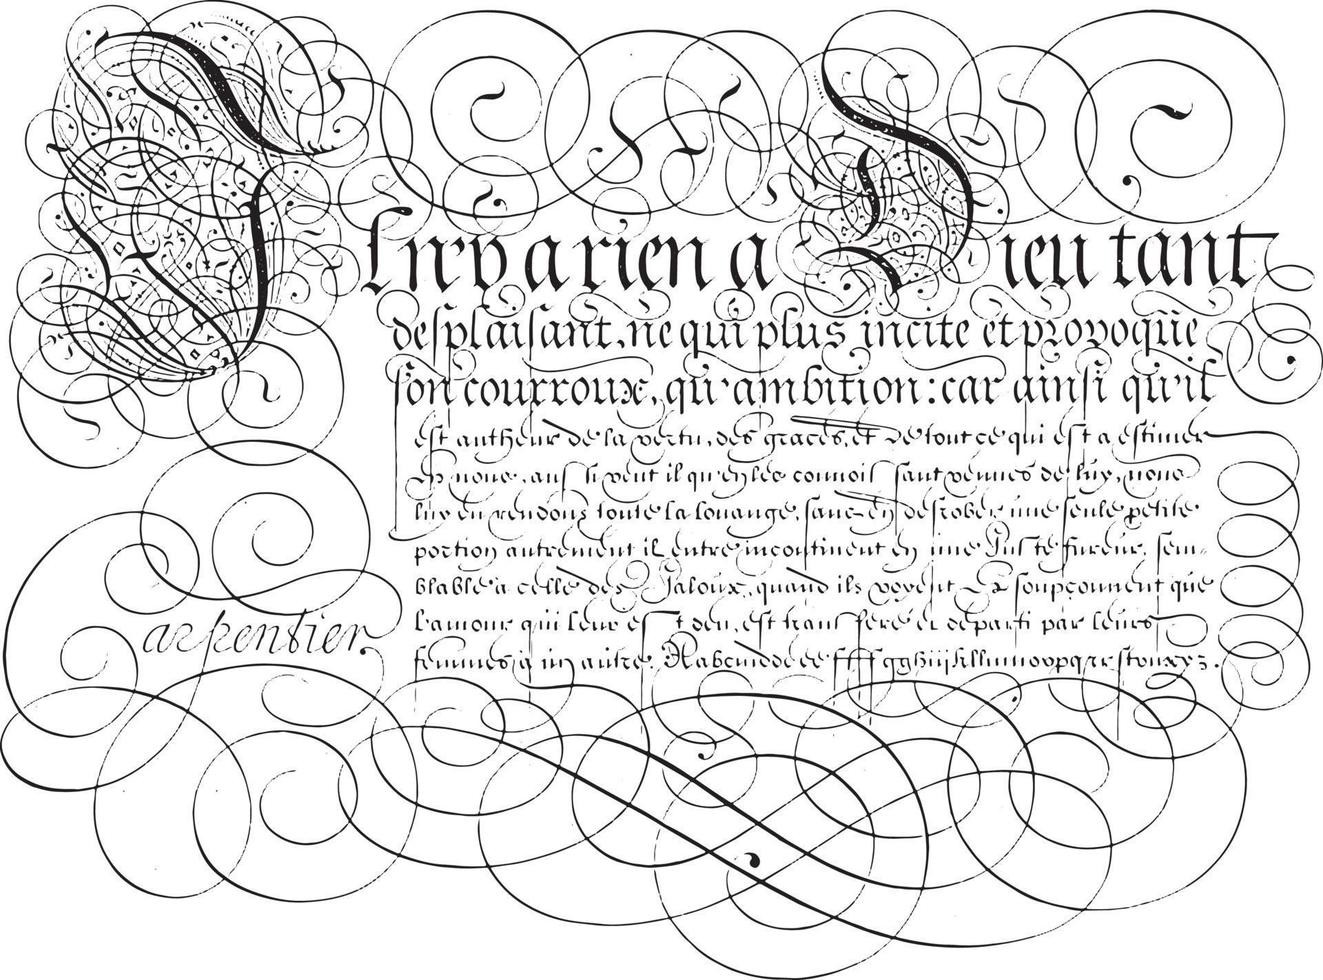 Il n'y a rien a Dieu tant
desplaisant, ne qui plus incite et provoque
son courroux, qu'ambition: car ainsi qu'il
est autheur de la vertu, des graces, et de tout ce qui est a estimer
en nous, aussi veut il qu'en les connoissant venues de luy, nous
luy en rendons toute la louange, sans en desrober une seule petite
portion autrement il entre incontinent en une juste fureur, sem-
blable a celle des Jaloux, quand ils voyent et soupçonnent que
l'amour qui leur est deu, est transferé et departi par leurs
femmes a un autre. Aabcuddeee ffffgghiijkllmnovpqrrstouxyz.
Carpentier